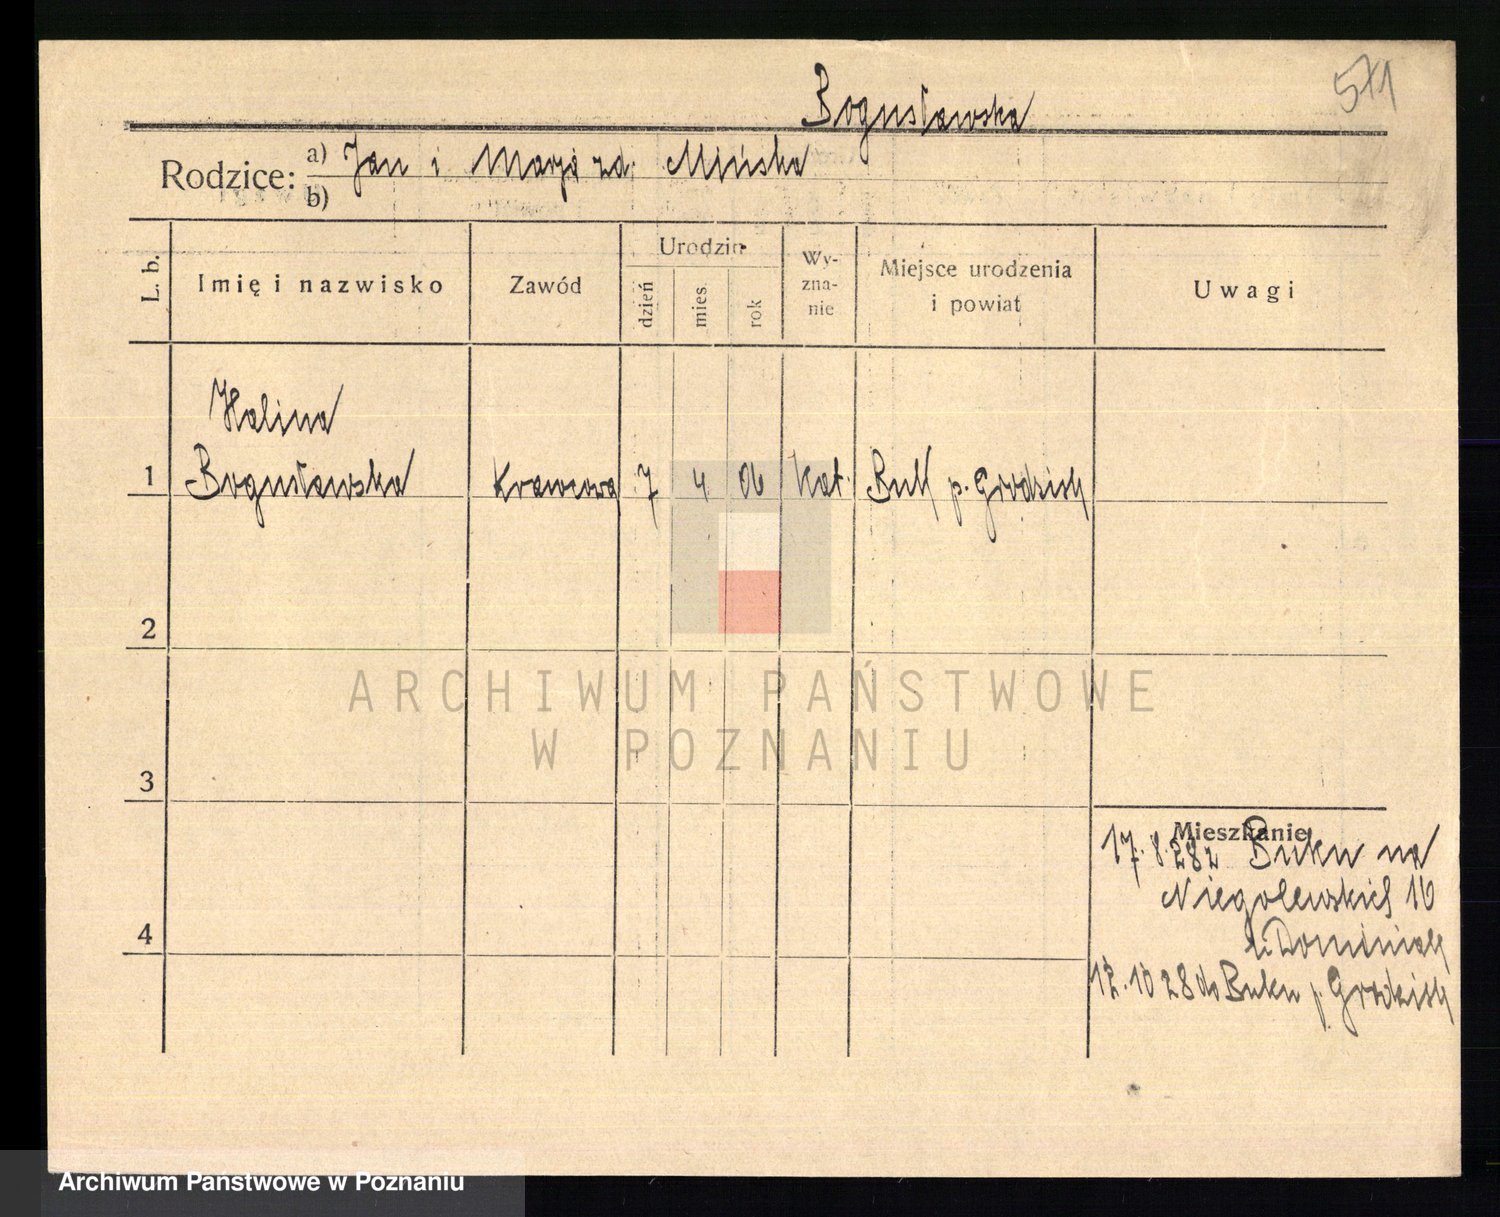 571
Bogusławska
Rodzice: a) Jan i Marja zd. Mińska
b)
L. b.
Imię i nazwisko
Zawód
Urodzin
dzień
mies.
rok
Wy-
zna-
nie
Miejsce urodzenia
i powiat
Uwagi
Halina
1 Bogusławska Krawcowa 7 4 06 kat. Buk p. Grodzisk
2
3
4
Mieszkanie
17.8.28 z Buku na
Niegolewskich 16
u. Dominiak
12.10 28 do Buku p. Grodzisk
ARCHIWUM PAŃSTWOWE
W POZNANIU
Archiwum Państwowe w Poznaniu